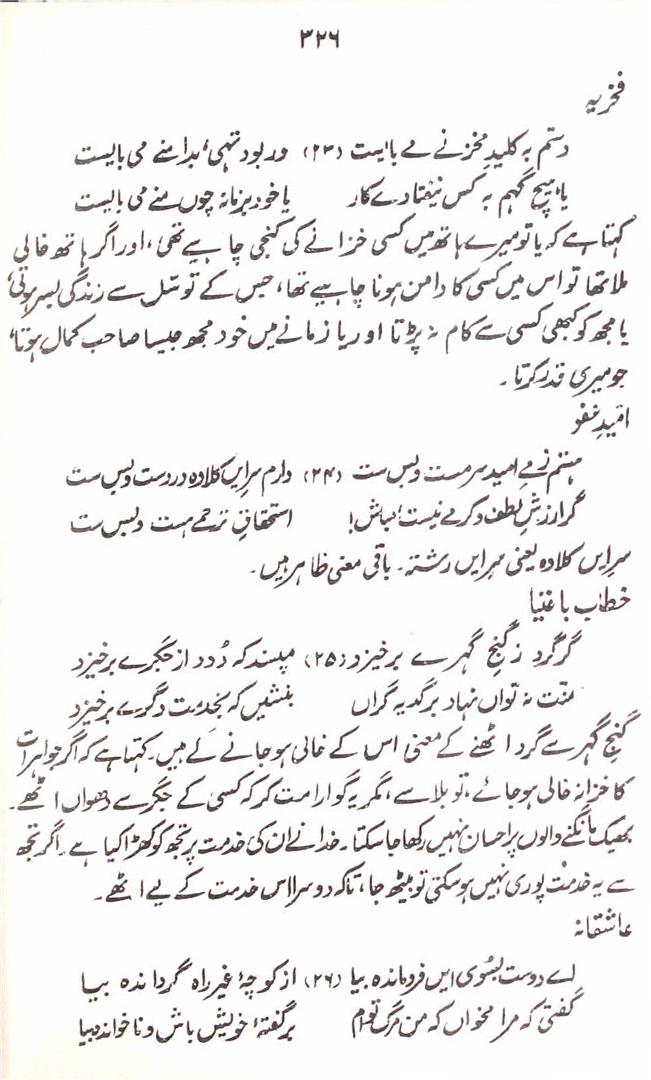 ۳۲۶
فخریہ
دستم بہ کلیدِ مخزنے مے بایست (۲۳) ور بود تہی، بدامنے می بایست
یا ہیچ گہم بہ کس نیفتادے کار یا خود بزمانہ چوں منے می بایست
کہتا ہے کہ یا تو میرے ہاتھ میں کسی خزانے کی کنجی چاہیے تھی، اور اگر ہاتھ خالی
ملا تھا تو اس میں کسی کا دامن ہونا چاہیے تھا، جس کے توسّل سے زندگی بسر ہوتی،
یا مجھ کو کبھی کسی سے کام نہ پڑتا اور یا زمانے میں خود مجھ جیسا صاحب کمال ہوتا،
جو میری قدر کرتا۔
امّیدِ عفو
ہستم زمےِ امید سرمست و بس ست (۲۴) دارم سرِ ایں کلاوہ در دست و بس ست
گر ارزشِ لطف و کرمے نیست، مباش! استحقاقِ ترحمے ہست و بس ست
سرِ ایں کلاوہ یعنی سر ایں رشتہ۔ باقی معنی ظاہر ہیں۔
خطاب باغنیا
گر گرد ز گنجِ گہرے برخیزد (۲۵) مپسند کہ دُود از جگرے برخیزد
منّت نہ تواں نہاد بر گدیہ گراں بنشیں کہ بخدمت دگرے برخیزد
گنجِ گہر سے گرد اٹھنے کے معنی اس کے خالی ہوجانے کے ہیں۔ کہتا ہے کہ اگر جواہرات
کا خزانہ خالی ہوجائے، تو بلا سے، مگر یہ گوارا مت کر کہ کسی کے جگر سے دھواں اٹھے۔
بھیک مانگنے والوں پر احسان نہیں رکھا جاسکتا۔ خدا نے ان کی خدمت پر تجھ کو کھڑا کیا ہے۔ اگر تجھ
سے یہ خدمت پوری نہیں ہوسکتی تو بیٹھ جا، تاکہ دوسرا اس خدمت کے لیے اٹھے۔
عاشقانہ
اے دوست بسُوی ایں فروماندہ بیا (۲۶) از کوچۂ غیر راہ گرداندہ بیا
گفتی کہ مرا مخواں کہ من مرگِ توام بر گفتۂ خویش باش و ناخواندہ بیا